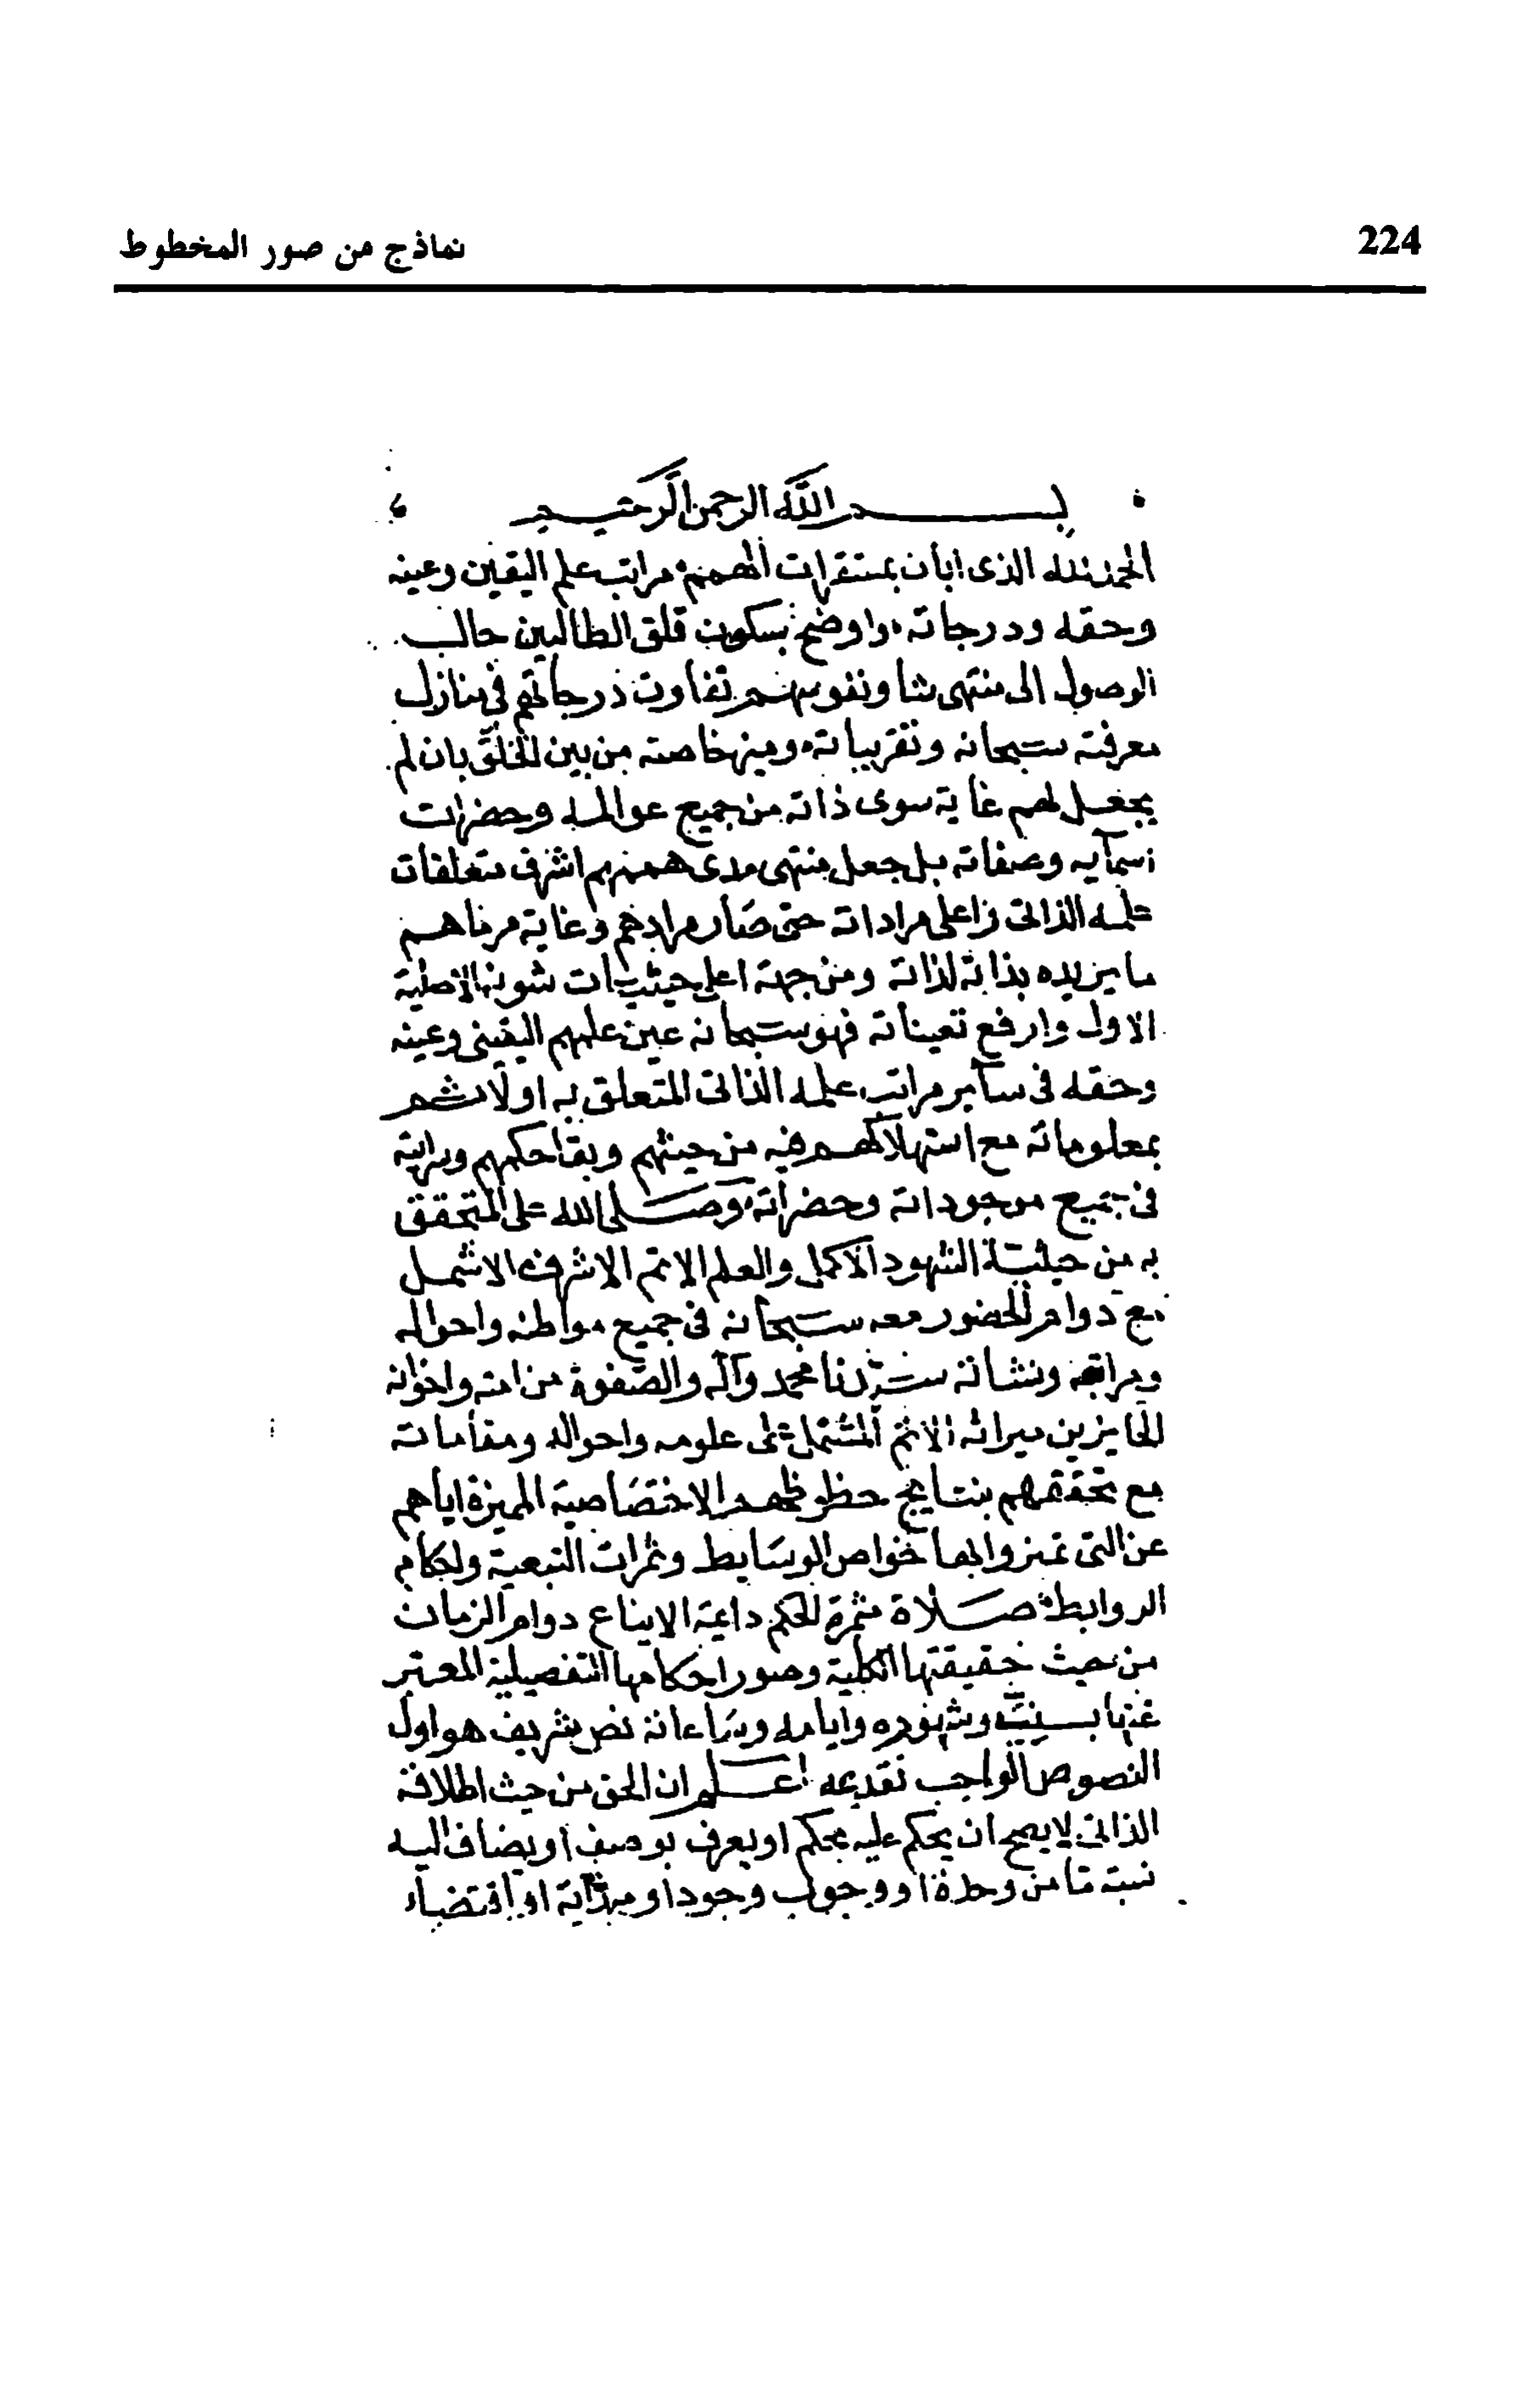 224
نماذج من صور المخطوط
بسم الله الرحمن الرحيم
الحمد لله الذى ابان بمستقرات الهمم مراتب علم اليقين وعينه
وحقه ودرجاته واوضح بسكون قلق الطالبين حالب
الوصول الى منتهى شاو نفوسهم تفاوت درجاتهم فى منازل
معرفته سبحانه وتقريباته وميز خاصته من بين الخلق بان لم
يجعل لهم غاية سوى ذاته من جميع عوالمه وحضرات
اسمآيه وصفاته بل جعل منتهى مدى هممهم اشرف متعلقات
علمه الذاتى واعلى مراداته حتى صار مرادهم وغاية مرماهم
ما يريده بذاته لذاته ومن جهة اعلى حيثيات شونه الاصلية
الاول وارفع تعيناته فهو سبحانه عين علمهم اليقينى وعينه
وحقه فى سآير مراتب علمه الذاتى المتعلق به اولا ثم
بمعلوماته مع استهلاكهم فيه من حيثهم وبقا حكمهم وسرايته
فى جميع موجوداته وحضراته وصلى الله على المتحقق
به من حيثية الشهود الاكمل والعلم الاتم الاشرف الاشمل
مع دوام الحضور معه سبحانه فى جميع مواطنه واحواله
ومراتبه ونشاته سيدنا محمد وآله والصفوة من امته واخوانه
الحايزين ميراثه الاتم المشتمل على علومه واحواله ومقاماته
مع تحققهم بنتايج حظوظهم الاختصاصية المميزة اياهم
عن التى تميزوا بها خواص الوسايط وثمرات التبعية واحكام
الروابط صلاة مثمرة الحكم دايمة الايناع دوام الزمان
من حيث حقيقتها الكلية وصور احكامها التفصيلية المعتبر
عنها بسنيه وشهوره وايامه وساعاته نص شريف هو اول
النصوص الواجب تقديمه اعلم ان الحق من حيث اطلاقه
الذاتى لا يصح ان يحكم عليه بحكم او يعرف بوصف او يضاف اليه
نسبة ما من وحدة او وجوب وجود او مبدآية او اقتضاء